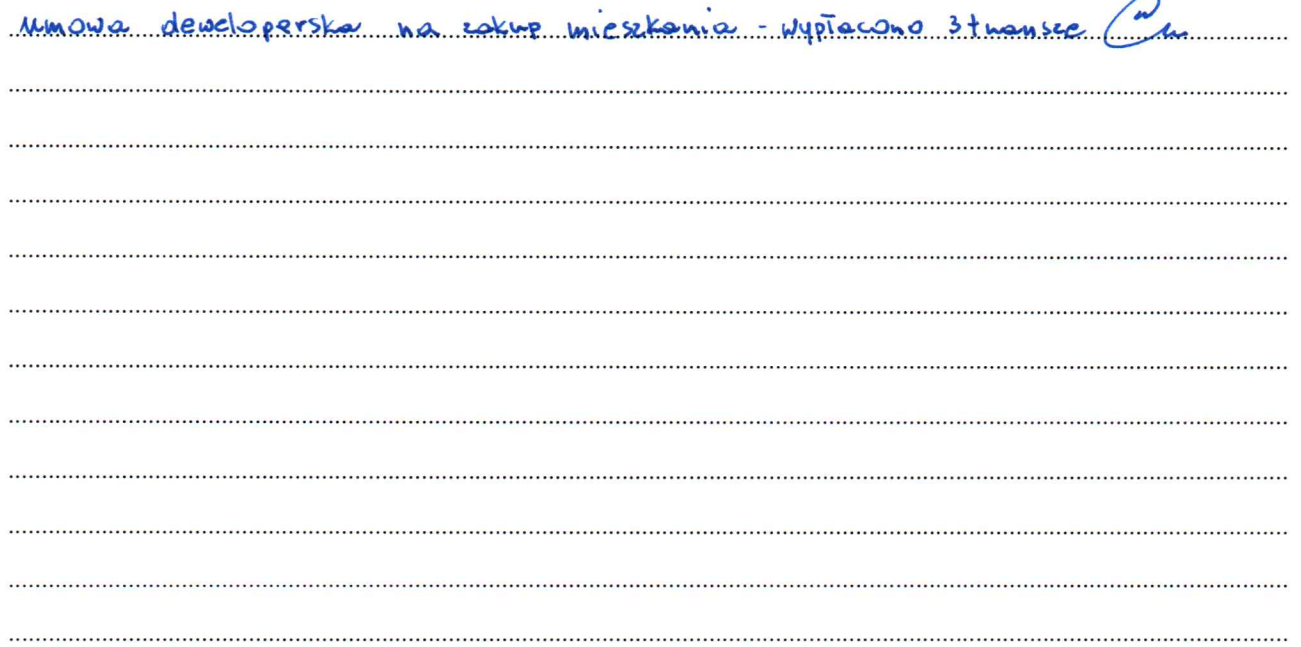 umowa deweloperska na zakup mieszkania - wypłacono 3 transze